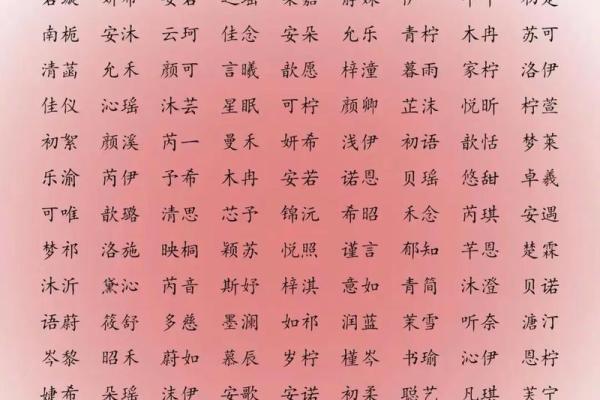 南栀 安沐 云珂 佳念 安朵 允乐 青柠 木冉 苏可
清菡 允禾 颜可 言曦 歆愿 梓潼 暮雨 家柠 洛伊
佳仪 沁瑶 沐芸 星眠 可柠 颜卿 芷沫 悦昕 柠萱
初絮 颜溪 芮一 曼禾 妍希 浅伊 初语 歆恬 梦莱
乐渝 芮伊 予希 木冉 安若 诺恩 贝瑶 悠甜 卓羲
可唯 歆璐 清思 芯予 锦沅 希昭 禾念 芮琪 安遇
梦祁 洛施 映桐 颖苏 悦照 谨言 郁知 芊恩 楚霖
沐沂 黛沁 芮音 斯妤 梓淇 意如 青简 沐澄 贝诺
语蔚 筱舒 多慈 墨澜 如祁 润蓝 茉雪 听奈 溏汀
岑黎 昭禾 蔚如 慕辰 岁柠 槿岑 书瑜 沁伊 恩柠
婕希 朵瑶 沫伊 安歌 安诺 初柔 聪艺 凡琪 芙宁